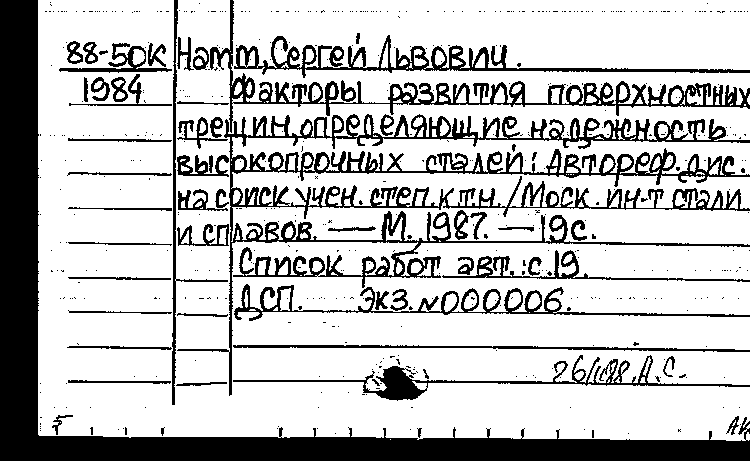 88-50К Натт, Сергей Львович.
1984 Факторы развития поверхностных
трещин, определяющие надежность
высокопрочных сталей: Автореф. дис.
на соиск. учен. степ. к.т.н. / Моск. ин-т стали
и сплавов. — М., 1987. — 19с.
Список работ авт.: с.19.
ДСП. Экз. №000006.
А.С.
5